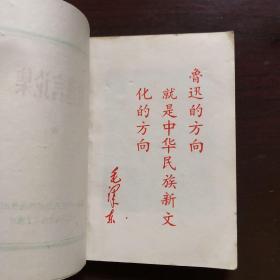 鲁迅的方向
就是中华民族新文
化的方向
毛泽东